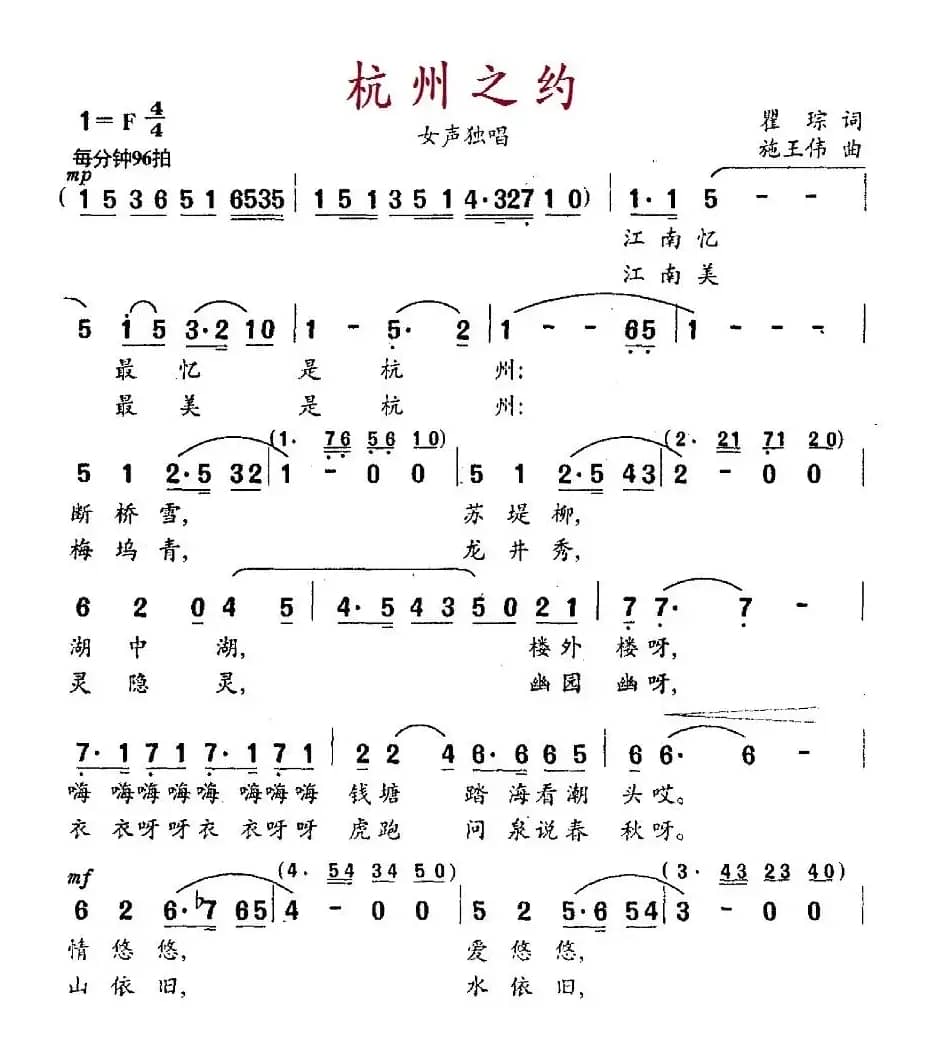 杭州之约
1=F 4/4
女声独唱
瞿 琮 词
每分钟96拍
施王伟 曲
mp
(1 5 3 6 5 1 6535 | 1 5 1 3 5 1 4·327 1 0) | 1·1 5 - - |
江南忆
江南美
5 1 5 3·2 10 | 1 - 5· 2 | 1 - - 65 | 1 - - - |
最 忆 是 杭 州:
最 美 是 杭 州:
(1· 76 56 10) (2· 21 71 20)
5 1 2·5 32 | 1 - 0 0 | 5 1 2·5 43 | 2 - 0 0 |
断桥雪, 苏堤柳,
梅坞青, 龙井秀,
6 2 0 4 5 | 4·5 4 3 5 0 2 1 | 7 7· 7 - |
湖中湖, 楼外楼呀,
灵隐灵, 幽园幽呀,
7·1 7 1 7·1 7 1 | 2 2 4 6·6 6 5 | 6 6· 6 - |
嗨嗨嗨嗨嗨嗨嗨嗨 钱塘 踏海看潮 头哎。
衣衣呀呀衣衣呀呀 虎跑 问泉说春 秋呀。
mf (4· 54 34 50) (3· 43 23 40)
6 2 6·♭7 65 | 4 - 0 0 | 5 2 5·6 54 | 3 - 0 0 |
情悠悠, 爱悠悠,
山依旧, 水依旧,